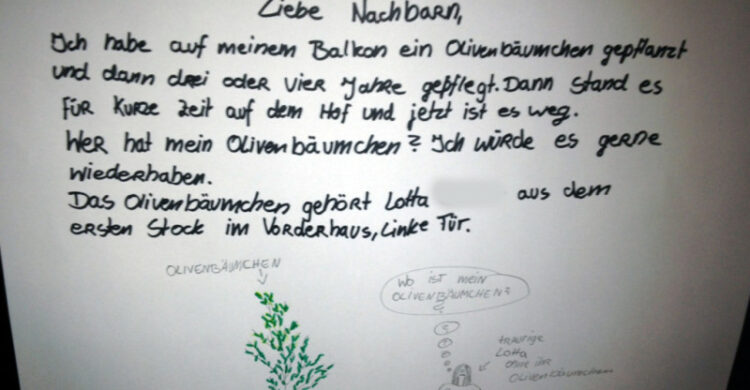 Liebe Nachbarn,
Ich habe auf meinem Balkon ein Olivenbäumchen gepflanzt
und dann drei oder vier Jahre gepflegt. Dann stand es
für kurze Zeit auf dem Hof und jetzt ist es weg.
Wer hat mein Olivenbäumchen? Ich würde es gerne
wiederhaben.
Das Olivenbäumchen gehört Lotta aus dem
ersten Stock im Vorderhaus, linke Tür.
OLIVENBÄUMCHEN
WO IST MEIN
OLIVENBÄUMCHEN?
traurige
Lotta
ohne ihr
Olivenbäumchen